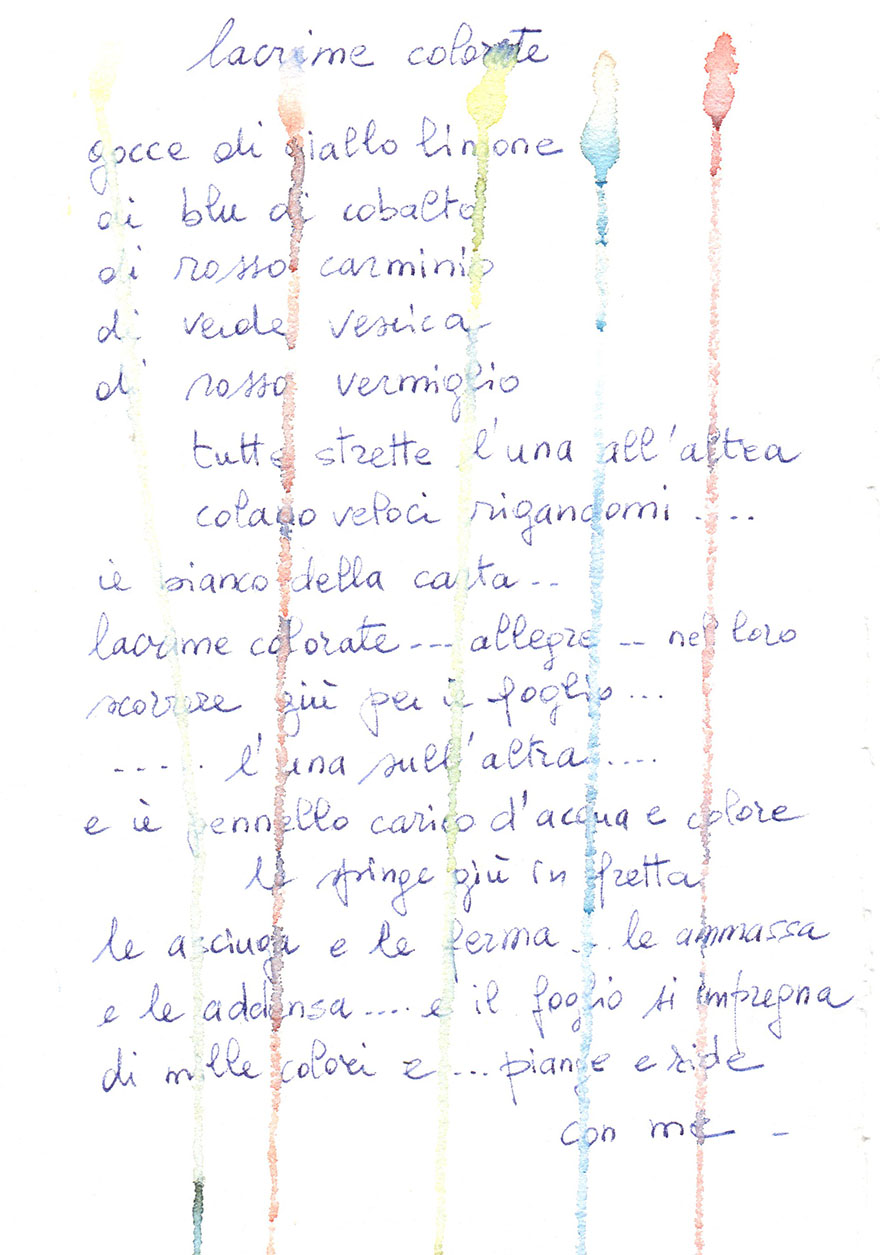 lacrime colorate
gocce di giallo limone
di blu di cobalto
di rosso carminio
di verde vescica
di rosso vermiglio
tutte strette l'una all'altra
colano veloci rigandomi ....
il bianco della carta --
lacrime colorate --- allegre -- nel loro
scorrere giù per il foglio ...
----- l'una sull'altra ....
e il pennello carico d'acqua e colore
le spinge giù in fretta
le asciuga e le ferma ... le ammassa
e le addensa .... e il foglio si impregna
di mille colori e ... piange e ride
con me -